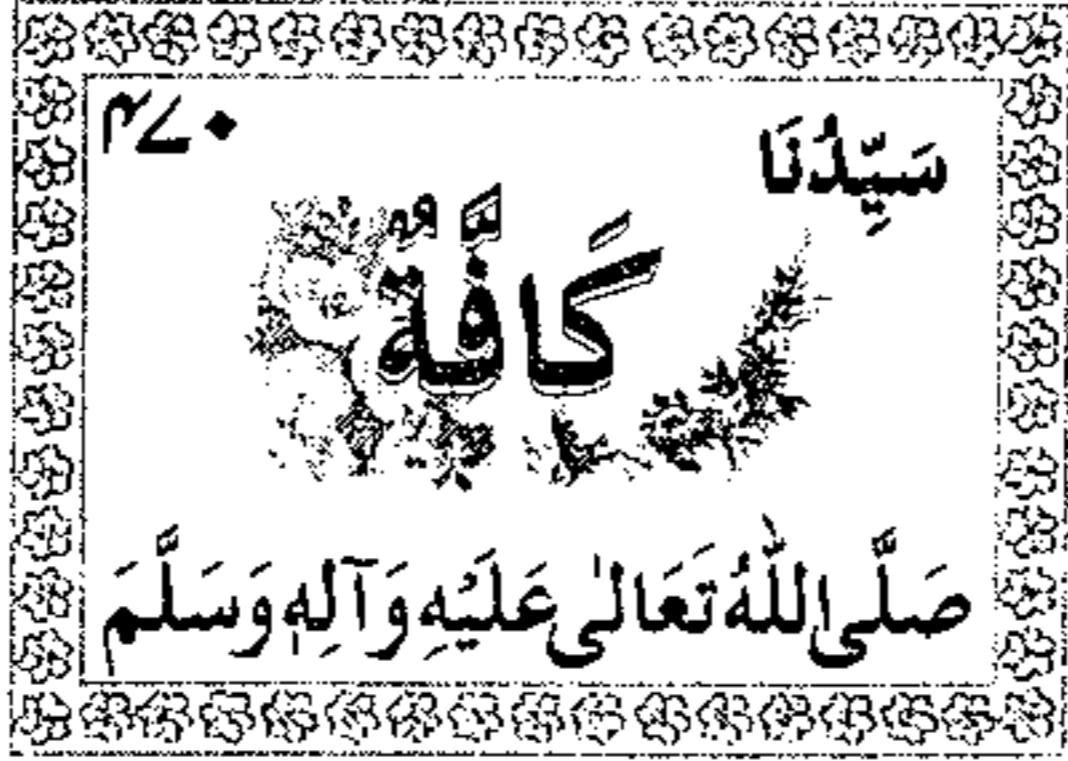 سَيِّدُنَا ۴۷۰
كَافَّةٌ
صَلَّى اللّٰهُ تَعَالٰى عَلَيْهِ وَآلِهٖ وَسَلَّمَ